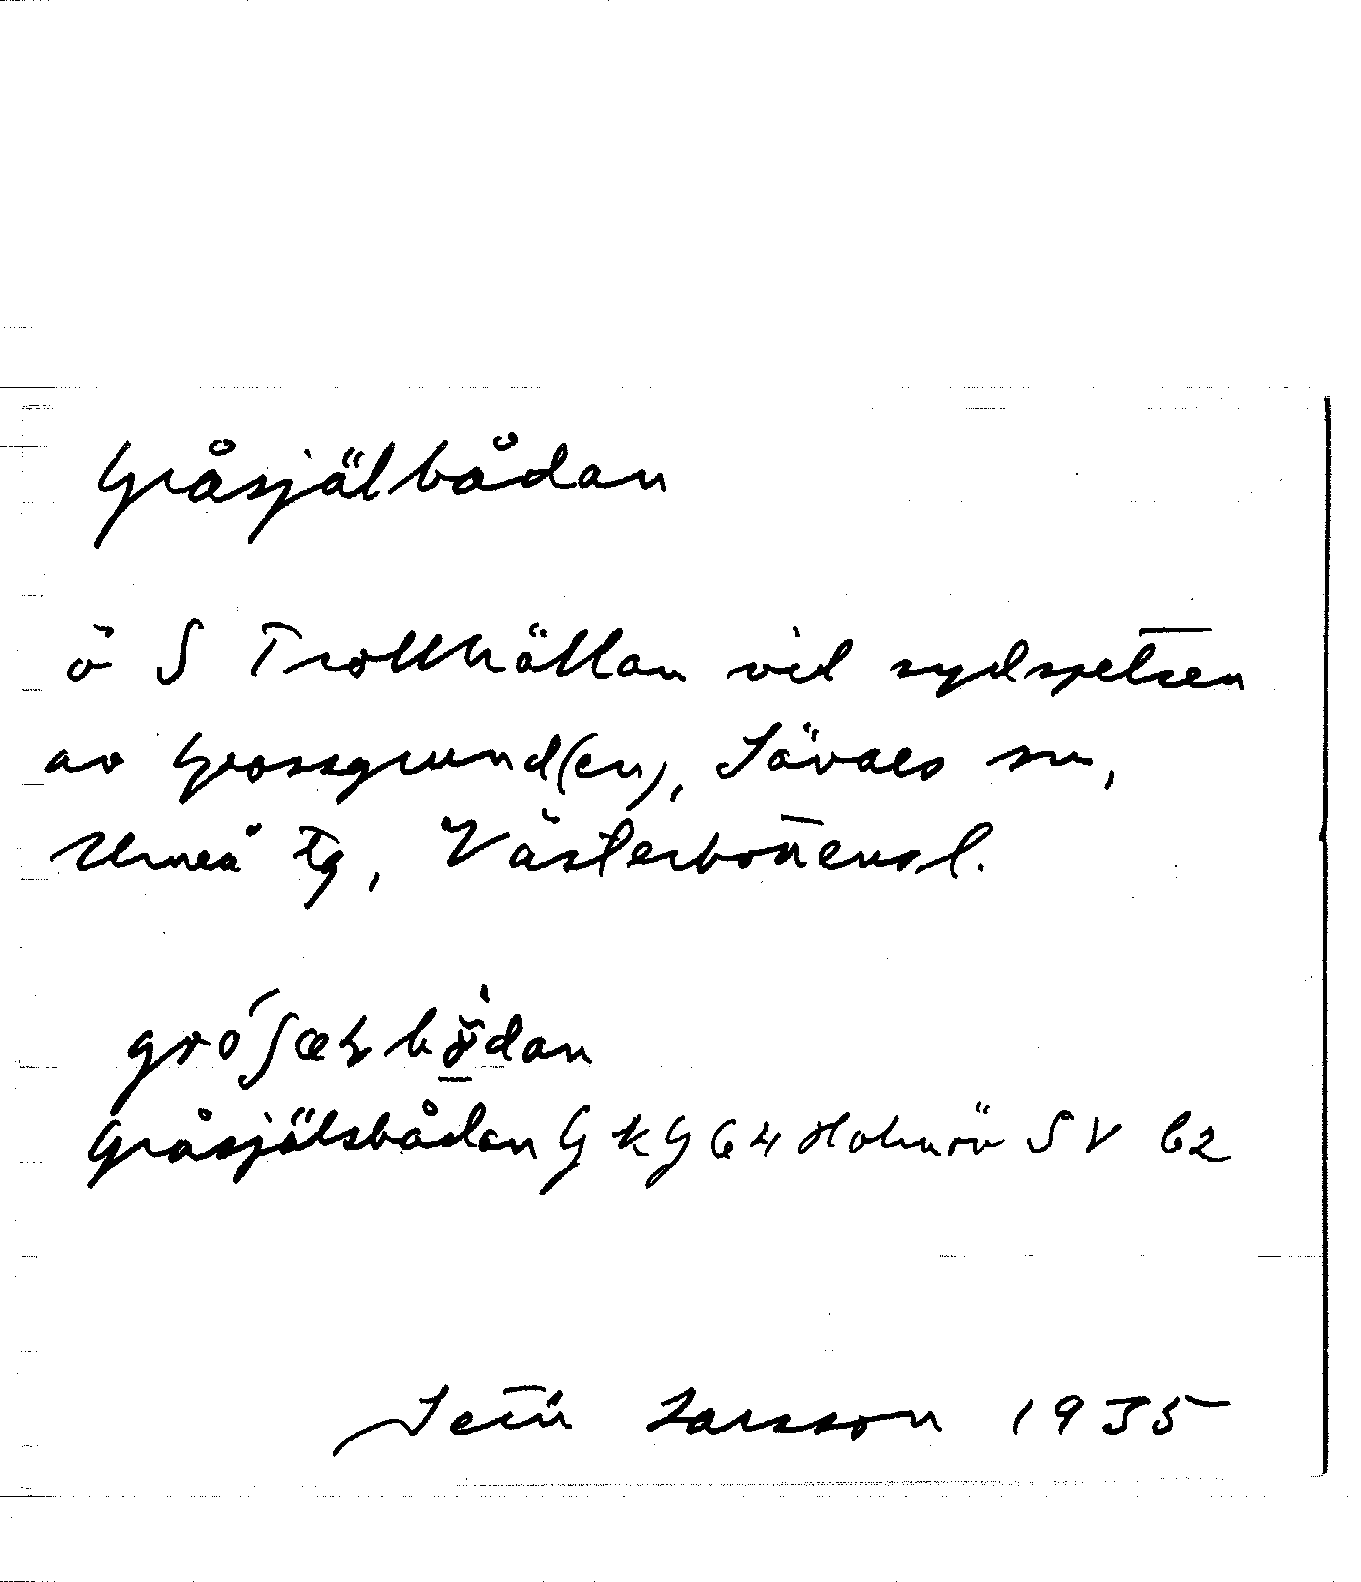 Gråsjälbådan
ö S Trollhällan vid sydspetsen
av Grossgrund(en), Sävars sn,
Umeå tg, Västerbottensl.
Gråsjälsbådan GKG 64 Holmön SV 62
Setin Larsson 1935